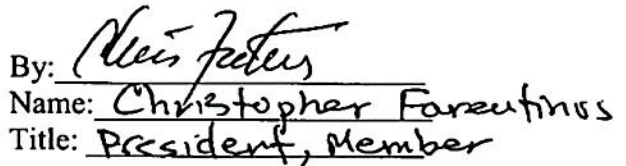 By: Chris
Name: Christopher Farentinos
Title: President, Member